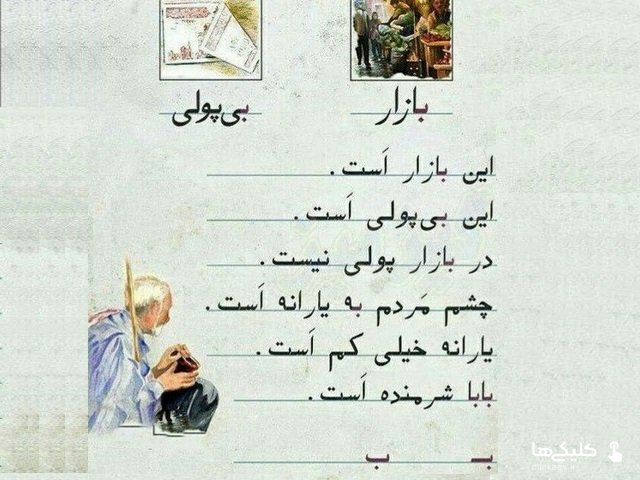 بازار
بی‌پولی
این بازار اَست.
این بی‌پولی اَست.
در بازار پولی نیست.
چشم مَردم به یارانه اَست.
یارانه خیلی کم اَست.
بابا شرمنده اَست.
بـ ب
کلیکی‌ها